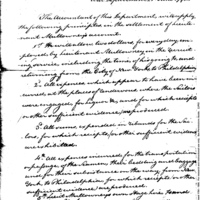 The Accountant of this Department, will apply
the following principles in the settlement of Lieuten-
ant Mullowny's account.
1st He will allow two dollars for every day em-
ployed by Lieutenant Mullowny in the Recruit-
ing service, including the time of his going to and
returning from the City of New York to Philadelphia
2d All expences which appear to have been in-
curred at the places of rendezvous where the Sailors
were engaged for liquor &c and for which receipts
or other sufficient evidence, are produced.
3d All monies expended in rewards for the Sai-
lors, for which receipts or other sufficient evidence
are exhibited.
4th All expences incurred for the transportation
or passage of the Seamen, their bedding and baggage
and for their subsistence on the way from New
York to Philadelphia for which receipts or other
sufficient evidence are produced.